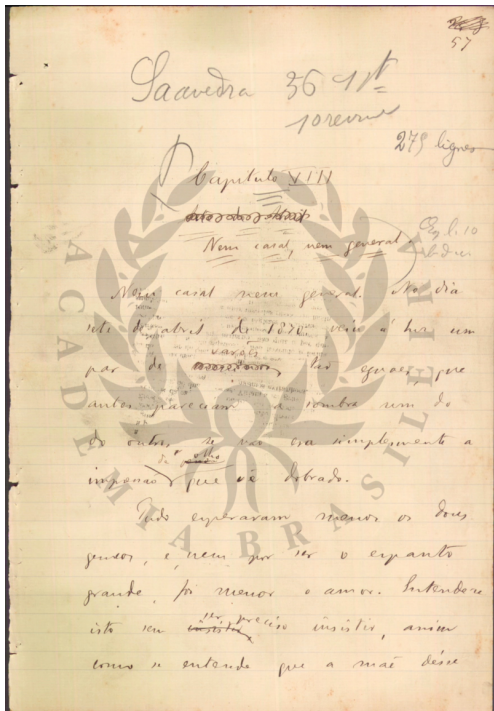 57
Saavedra 36 1st
10 reviser
275 lignes
Capitulo VIII
Nem casal, nem general
Nem casal nem general. No dia
sete de abril de 1870 veiu á luz um
par de varões tão eguaes, que
antes pareciam a sombra um do
do outro, se não era simplesmente a
impressão do olho, que via dobrado.
Tudo esperavam menos os dous
gemeos, e nem por ser o espanto
grande, foi menor o amor. Entende-se
isto sem ser preciso insistir, assim
como se entende que a mãe désse
ACADEMIA BRASILEIRA